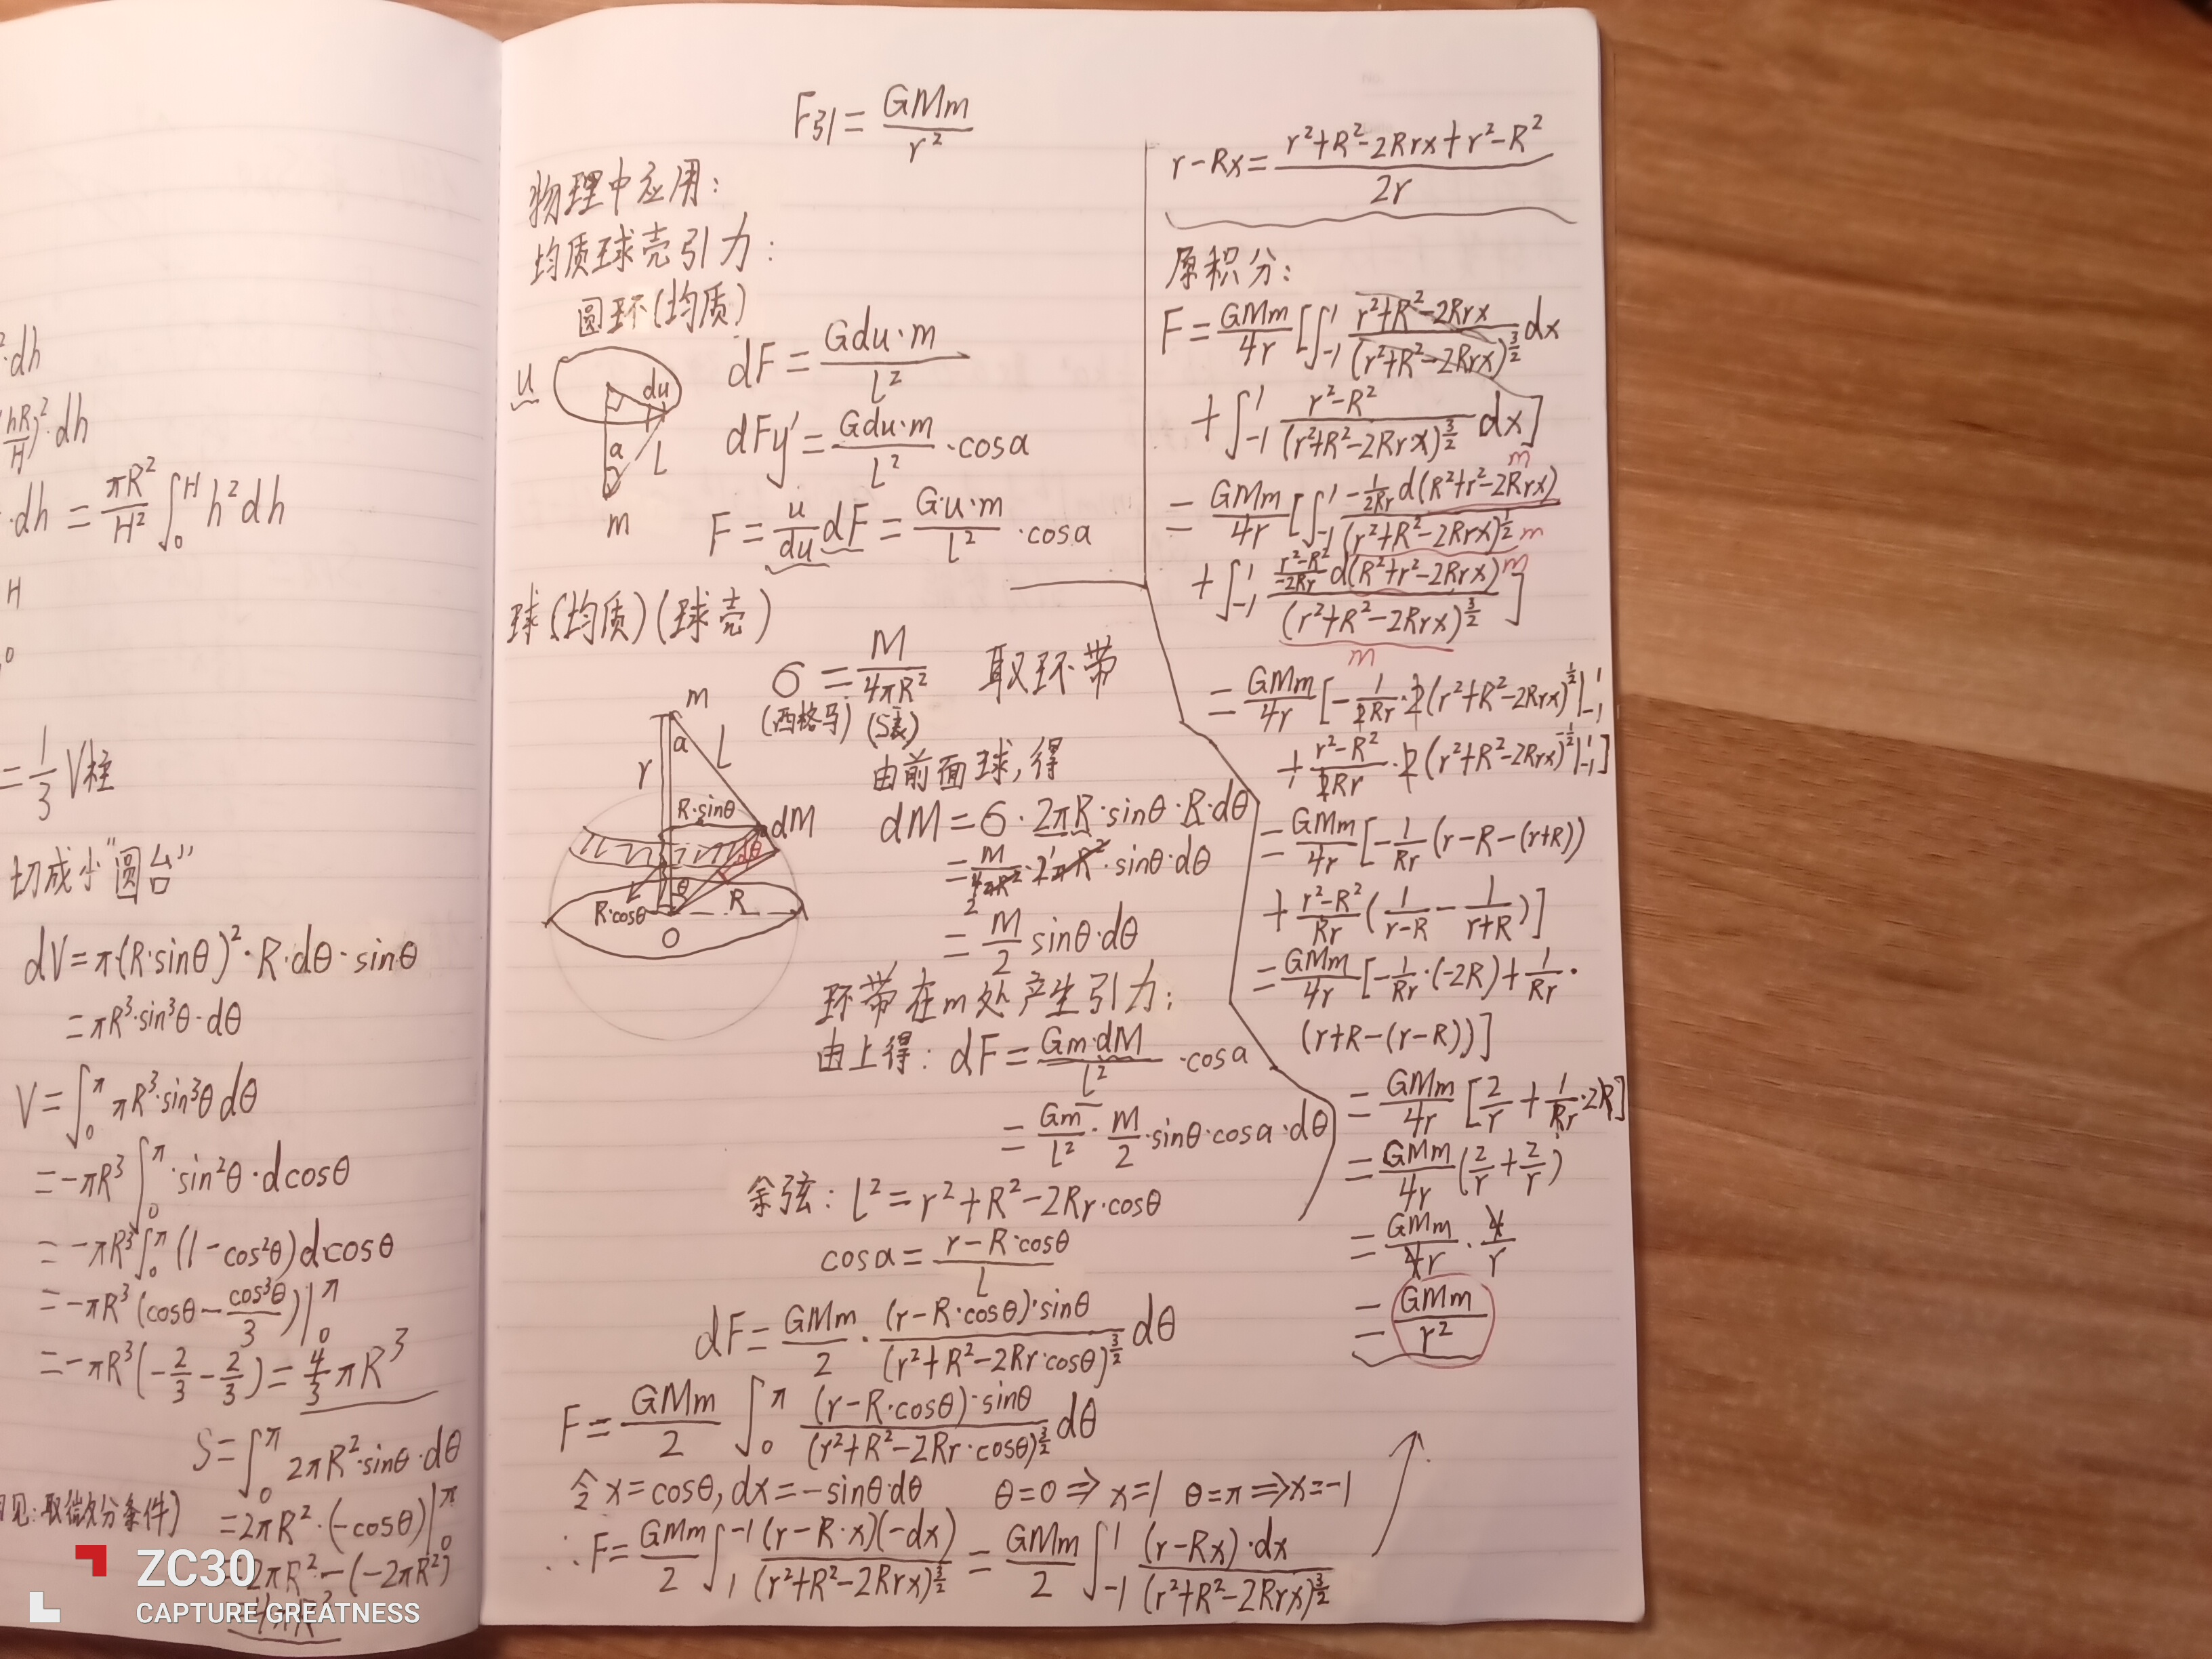 ²·dh
(hR/H)²·dh
·dh = πR²/H² ∫₀ᴴ h²dh
H
0
= 1/3 V柱
切成小"圆台"
dV = π·(R·sinθ)²·R·dθ·sinθ
= πR³·sin³θ·dθ
V = ∫₀^π πR³·sin³θ dθ
= -πR³ ∫₀^π ·sin²θ·dcosθ
= -πR³ ∫₀^π (1-cos²θ)dcosθ
= -πR³ (cosθ - cos³θ/3)|₀^π
= -πR³(-2/3 - 2/3) = 4/3 πR³
S = ∫₀^π 2πR²·sinθ·dθ
见:取微分条件)
= 2πR²·(-cosθ)|₀^π
= 2πR² - (-2πR²)
= 4πR²
ZC30
CAPTURE GREATNESS
F引 = GMm/r²
物理中应用:
均质球壳引力:
圆环(均质)
u
du
a
L
m
dF = Gdu·m/l²
dFy' = Gdu·m/l² ·cosa
F = u/du dF = G·u·m/l² ·cosa
球(均质)(球壳)
σ = M/4πR² 取环带
(西格马) (S表)
m
a
r
L
R·sinθ
dM
dθ
θ
R·cosθ
R
O
由前面球,得
dM = σ·2πR·sinθ·R·dθ
= M/4πR² ·2πR²·sinθ·dθ
= M/2 sinθ·dθ
环带在m处产生引力:
由上得: dF = Gm·dM/l² ·cosa
= Gm/l² · M/2 ·sinθ·cosa·dθ
余弦: l² = r²+R²-2Rr·cosθ
cosa = (r-R·cosθ)/L
dF = GMm/2 · (r-R·cosθ)·sinθ/(r²+R²-2Rr·cosθ)^(3/2) dθ
F = GMm/2 ∫₀^π (r-R·cosθ)·sinθ/(r²+R²-2Rr·cosθ)^(3/2) dθ
令x=cosθ, dx=-sinθ·dθ θ=0⇒x=1 θ=π⇒x=-1
∴F = GMm/2 ∫₁^-1 (r-R·x)(-dx)/(r²+R²-2Rrx)^(3/2) = GMm/2 ∫₋₁^1 (r-Rx)·dx/(r²+R²-2Rrx)^(3/2)
r-Rx = (r²+R²-2Rrx+r²-R²)/2r
原积分:
F = GMm/4r [∫₋₁^1 (r²+R²-2Rrx)/(r²+R²-2Rrx)^(3/2) dx
+ ∫₋₁^1 (r²-R²)/(r²+R²-2Rr·x)^(3/2) dx]
m
= GMm/4r [∫₋₁^1 -1/2Rr d(R²+r²-2Rrx)/(r²+R²-2Rrx)^(1/2) m
+ ∫₋₁^1 (r²-R²)/-2Rr d(R²+r²-2Rrx)/(r²+R²-2Rrx)^(3/2)] m
m
= GMm/4r [-1/2Rr ·2(r²+R²-2Rrx)^(1/2)|₋₁^1
+ (r²-R²)/2Rr ·2(r²+R²-2Rrx)^(-1/2)|₋₁^1]
= GMm/4r [-1/Rr (r-R-(r+R))
+ (r²-R²)/Rr (1/(r-R) - 1/(r+R))]
= GMm/4r [-1/Rr ·(-2R) + 1/Rr ·
(r+R-(r-R))]
= GMm/4r [2/r + 1/Rr ·2R]
= GMm/4r (2/r + 2/r)
= GMm/4r · 4/r
= GMm/r²